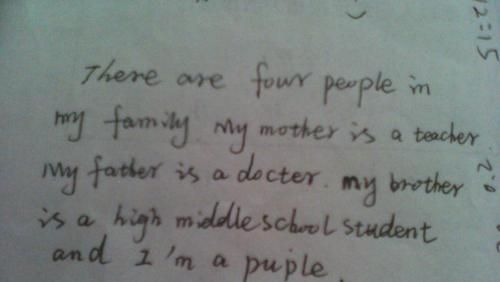 12=15
There are four people in
my family. My mother is a teacher
My father is a docter. my brother
is a high middle school student
and I'm a puple.